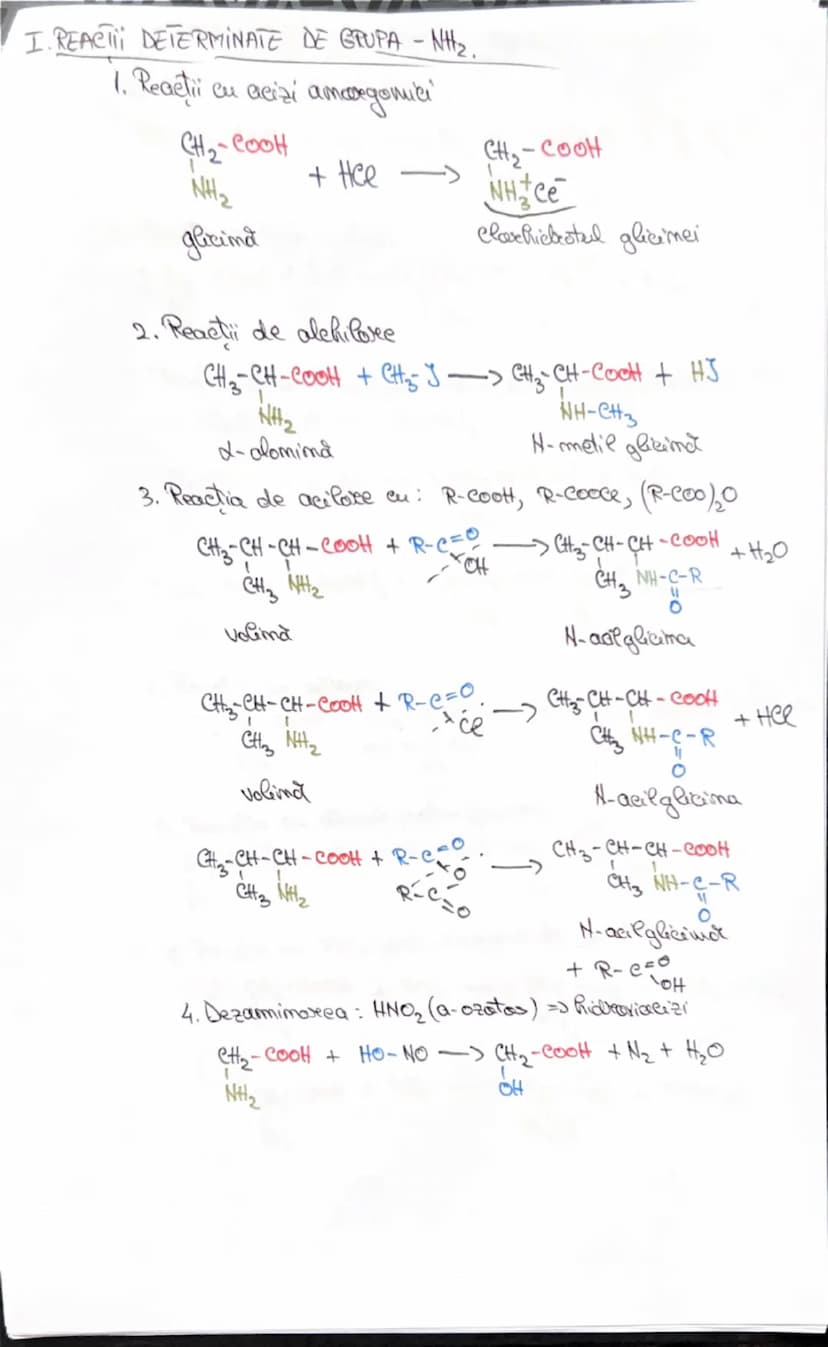 I. REACȚII DETERMINATE DE GRUPA -NH₂.
1. Reacții cu acizi anorganici
CH₂-COOH + HCl ⟶ CH₂-COOH
NH₂ NH₃⁺Cl⁻
glicină clorhidratul glicinei
2. Reacții de alchilare
CH₃-CH-COOH + CH₃-J ⟶ CH₃-CH-COOH + HJ
NH₂ NH-CH₃
α-alanină N-metil glicină
3. Reacția de acilare cu: R-COOH, R-COOCl, (R-COO)₂O
CH₃-CH-CH-COOH + R-C=O ⟶ CH₃-CH-CH-COOH + H₂O
CH₃ NH₂ OH CH₃ NH-C-R
O
valină N-acilglicina
CH₃-CH-CH-COOH + R-C=O ⟶ CH₃-CH-CH-COOH + HCl
CH₃ NH₂ Cl CH₃ NH-C-R
O
valină N-acilglicina
CH₃-CH-CH-COOH + R-C=O ⟶ CH₃-CH-CH-COOH
CH₃ NH₂ O CH₃ NH-C-R
R-C=O O
N-acilglicină
+ R-C=O
OH
4. Dezaminarea: HNO₂ (a-azotos) => hidroxiacizi
CH₂-COOH + HO-NO ⟶ CH₂-COOH + N₂ + H₂O
NH₂ OH